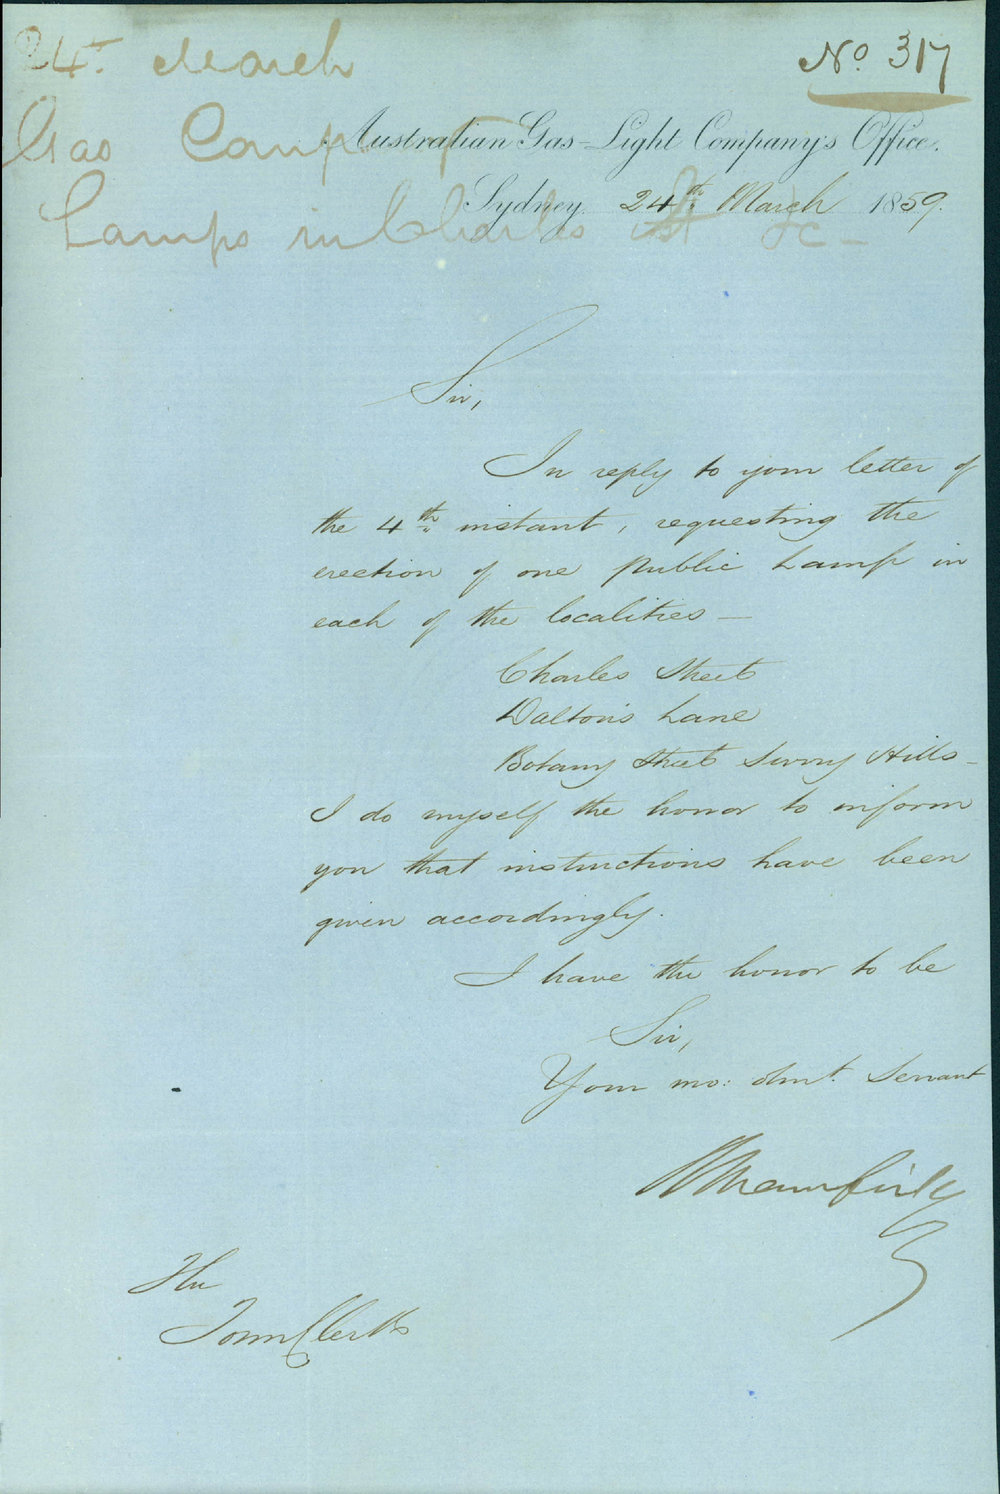 24th March
No. 317
Gas Comp
Australian Gas-Light Company's Office.
Sydney 24th March 1859.
Lamps in Charles St &c -
Sir,
In reply to your letter of
the 4th instant, requesting the
erection of one public Lamp in
each of the localities —
Charles Street
Dalton's Lane
Botany Street Surry Hills -
I do myself the honor to inform
you that instructions have been
given accordingly.
I have the honor to be
Sir,
Your mo: obnt. Servant
The
Town Clerk